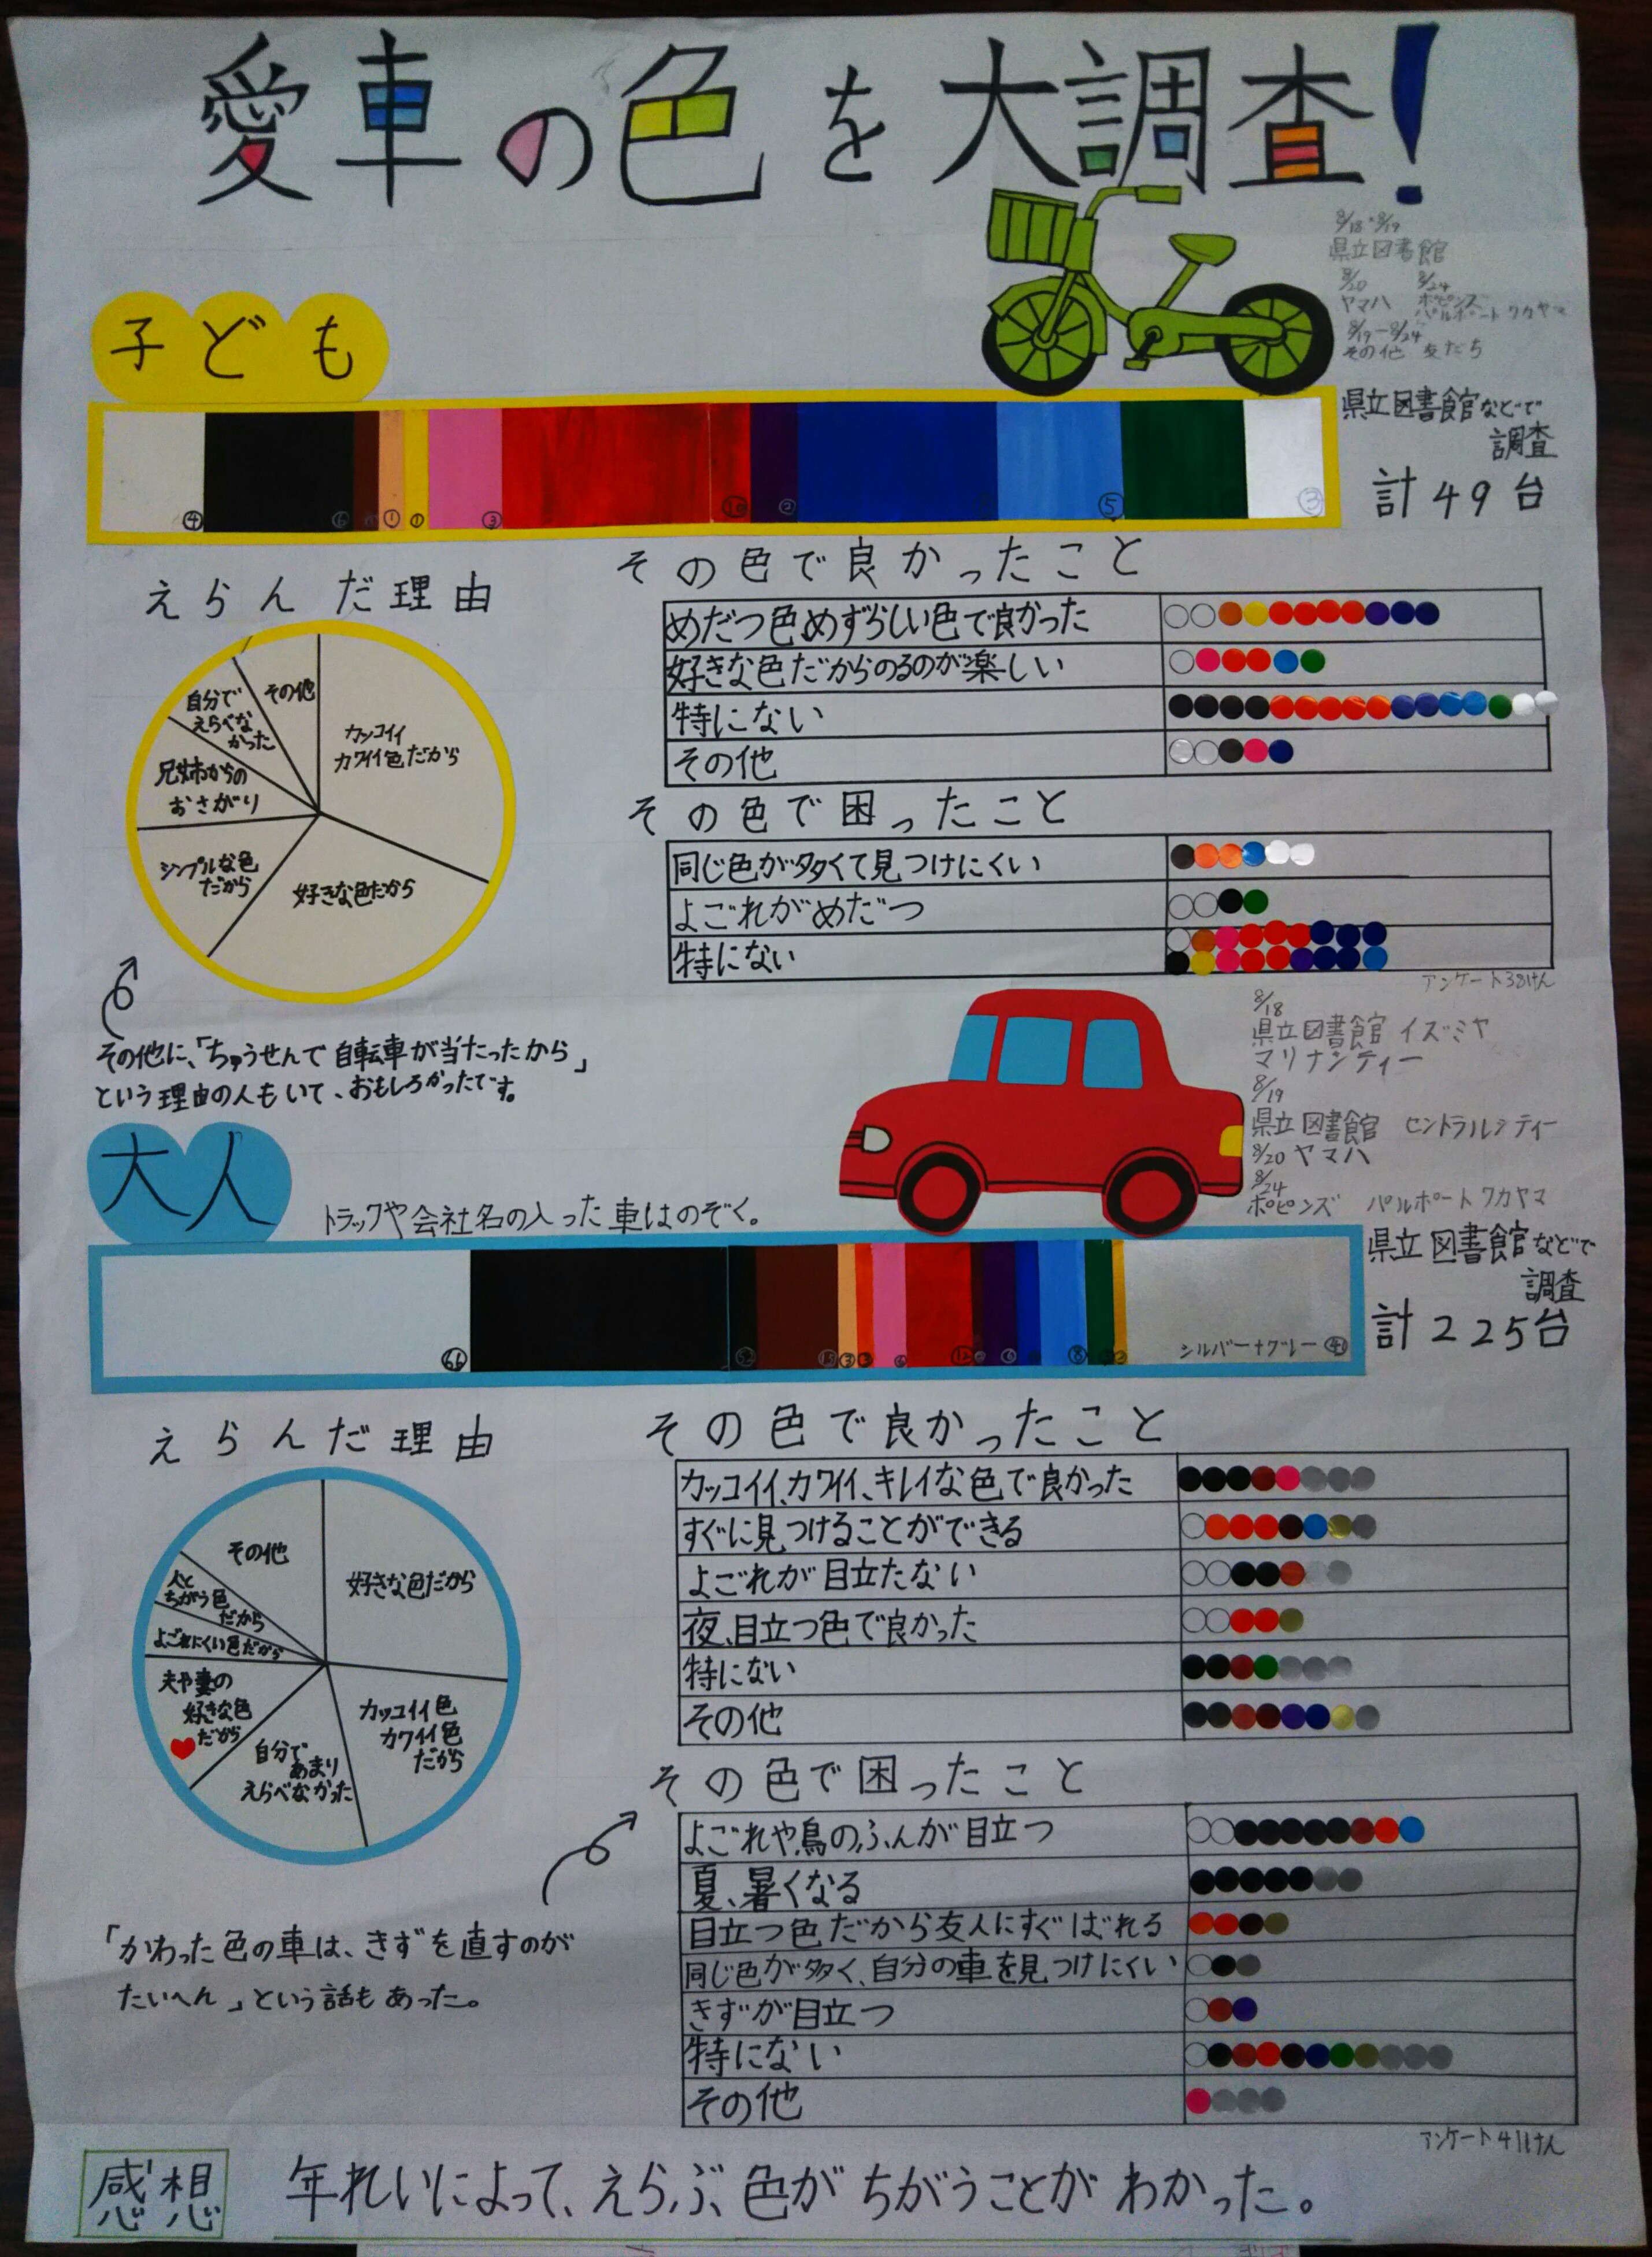 愛車の色を大調査!
8/18・8/19
県立図書館
8/20 8/24
ヤマハ ポピンズ
パルポートワカヤマ
8/19-8/24
その他 友だち
子ども
県立図書館などで
調査
計49台
④ ⑥ ① ① ③ ⑩ ② ⑤ ③
えらんだ理由
カッコイイ
カワイイ色だから
好きな色だから
シンプルな色
だから
兄姉からの
おさがり
自分で
えらべな
かった
その他
その他に、「ちゅうせんで自転車が当たったから」
という理由の人もいて、おもしろかったです。
その色で良かったこと
めだつ色、めずらしい色で良かった
好きな色だからのるのが楽しい
特にない
その他
その色で困ったこと
同じ色が多くて見つけにくい
よごれがめだつ
特にない
アンケート38けん
8/18
県立図書館 イズミヤ
マリナシティー
8/19
県立図書館 セントラルシティー
8/20 ヤマハ
8/24
ポピンズ パルポートワカヤマ
大人
トラックや会社名の入った車はのぞく。
県立図書館などで
調査
計225台
66 52 15 ③ ③ ⑥ 12 ⑥ ⑧ シルバー+グレー 41
えらんだ理由
好きな色だから
カッコイイ色
カワイイ色
だから
自分で
あまり
えらべなかった
夫や妻の
好きな色
だから
よごれにくい色だから
人と
ちがう色
だから
その他
「かわった色の車は、きずを直すのが
たいへん」という話もあった。
その色で良かったこと
カッコイイ、カワイイ、キレイな色で良かった
すぐに見つけることができる
よごれが目立たない
夜、目立つ色で良かった
特にない
その他
その色で困ったこと
よごれや鳥のふんが目立つ
夏、暑くなる
目立つ色だから友人にすぐばれる
同じ色が多く、自分の車を見つけにくい
きずが目立つ
特にない
その他
アンケート41けん
感想
年れいによって、えらぶ色がちがうことがわかった。